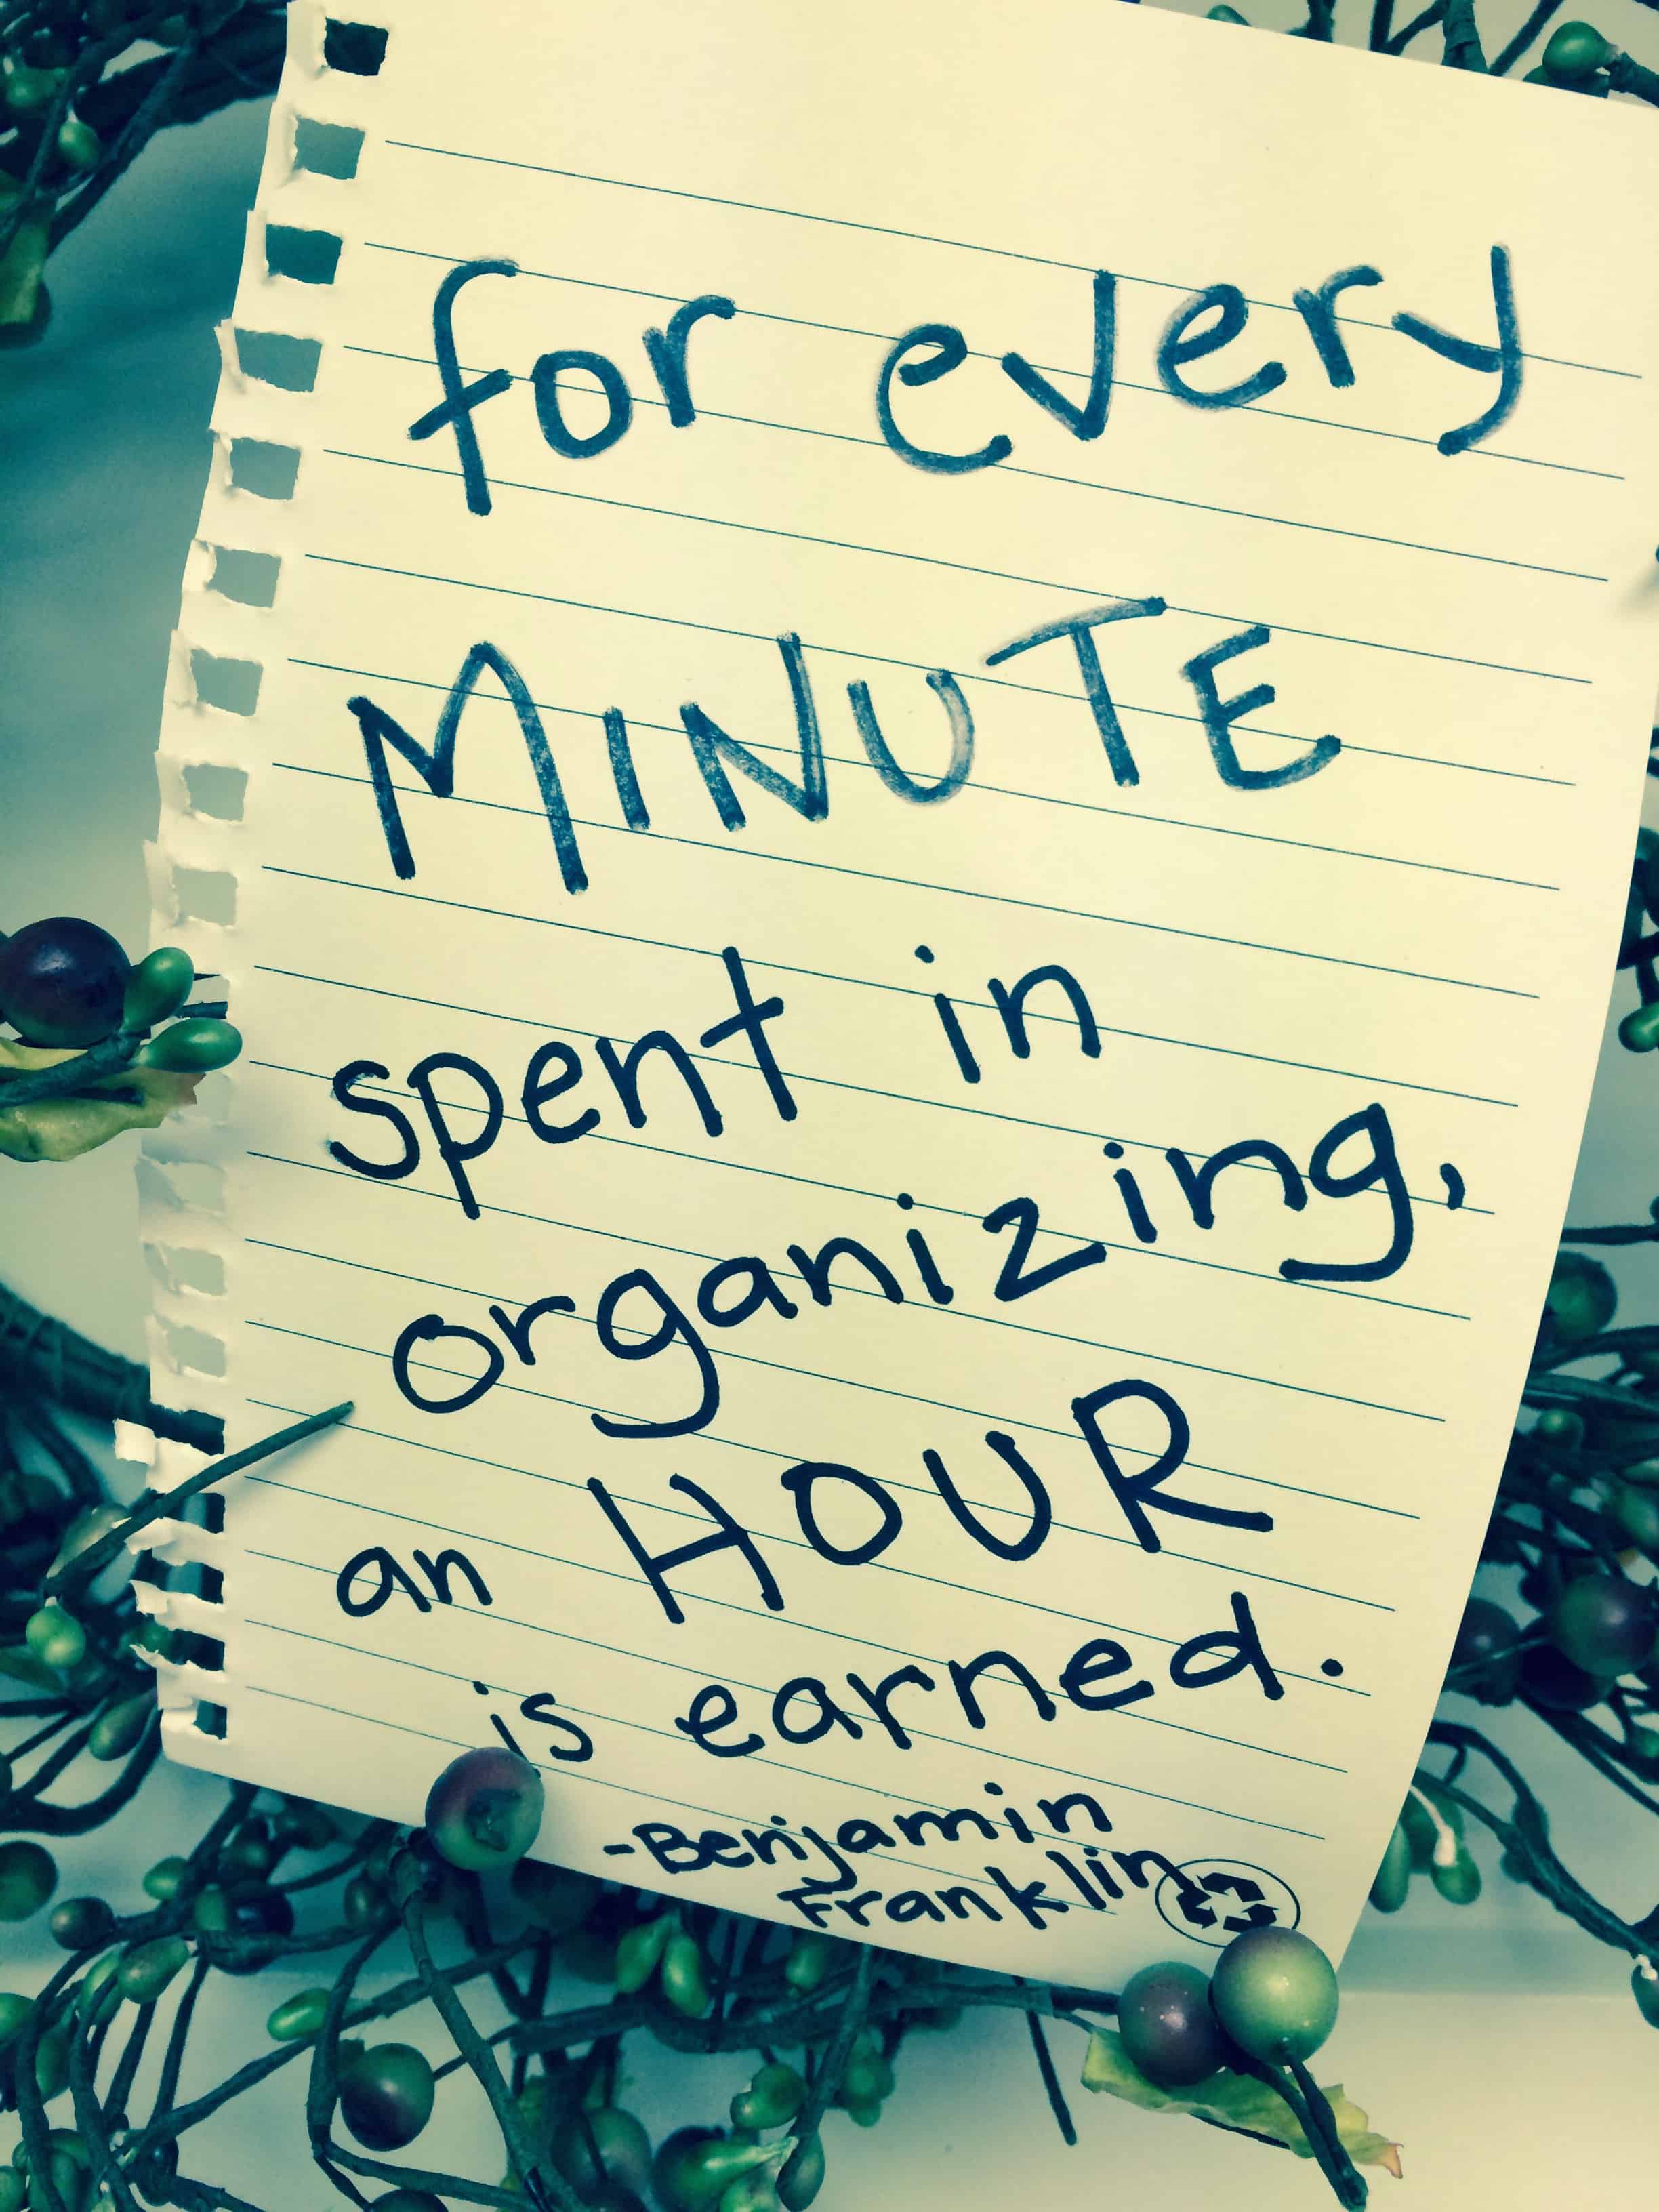 for every
MINUTE
spent in
organizing,
an HOUR
is earned.
-Benjamin
Franklin